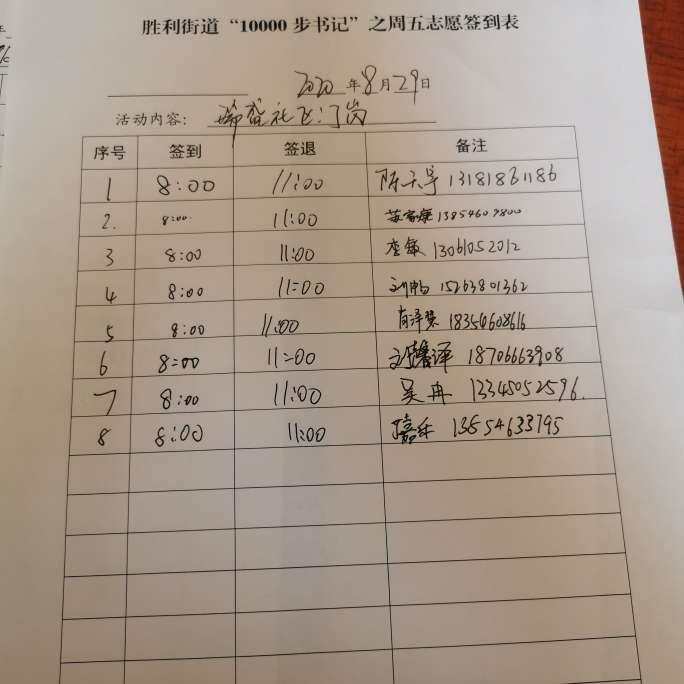 胜利街道“10000步书记”之周五志愿签到表
2020年8月29日
活动内容： 社区门岗
序号 签到 签退 备注
1 8:00 11:00 13181861186
2. 8:00 11:00 13854609800
3 8:00 11:00 李敏 13061052012
4 8:00 11:00 15263801362
5 8:00 11:00 18354608616
6 8:00 11:00 18706663908
7 8:00 11:00 吴冉 13345052596.
8 8:00 11:00 13554633795